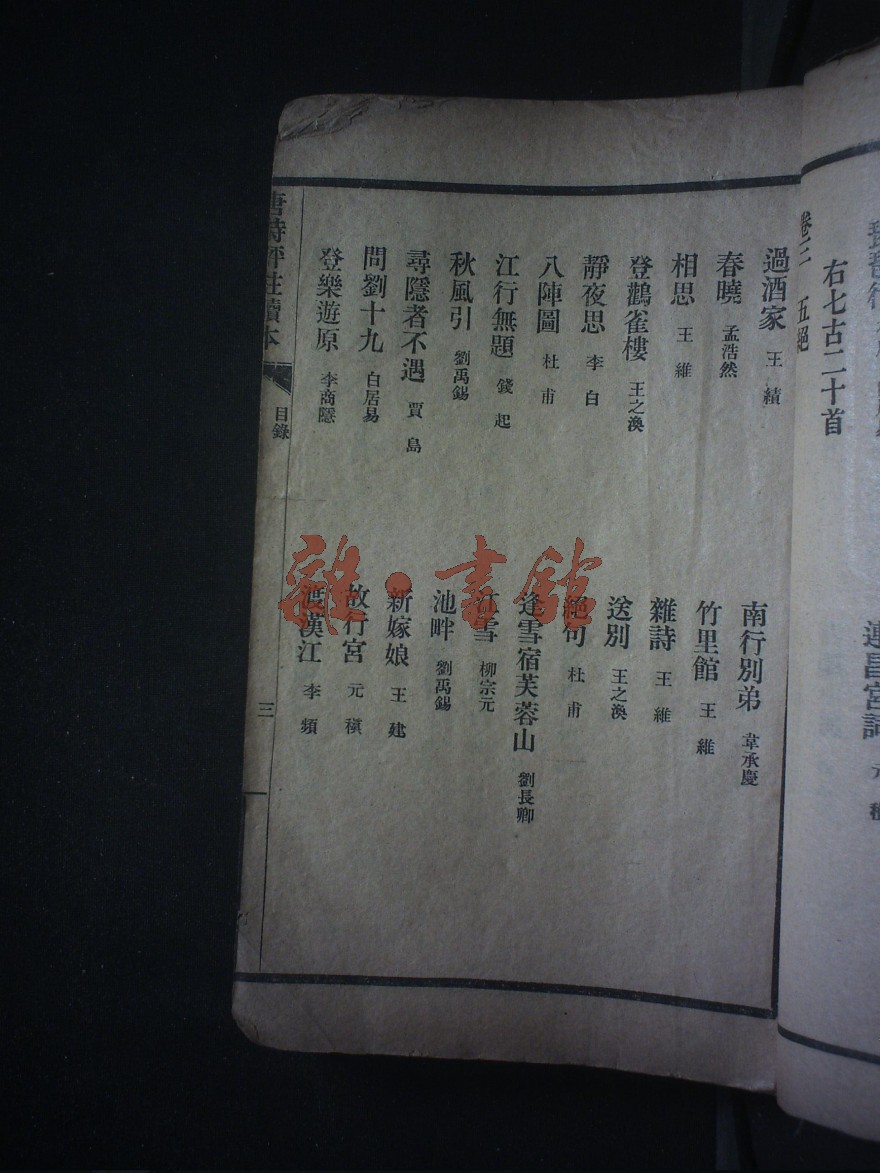 連昌宮詞 元稹
右七古二十首
卷三 五絕
過酒家 王績 南行別弟 韋承慶
春曉 孟浩然 竹里館 王維
相思 王維 雜詩 王維
登鸛雀樓 王之渙 送別 王之渙
靜夜思 李白 絕句 杜甫
八陣圖 杜甫 逢雪宿芙蓉山 劉長卿
江行無題 錢起 江雪 柳宗元
秋風引 劉禹錫 池畔 劉禹錫
尋隱者不遇 賈島 新嫁娘 王建
問劉十九 白居易 故行宮 元稹
登樂遊原 李商隱 渡漢江 李頻
唐詩評註讀本 目錄 三
雜·書館